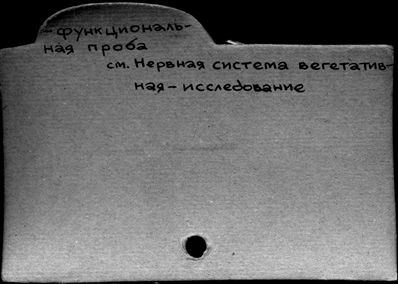 - функциональ-
ная проба
см. Нервная система вегетатив-
ная - исследование